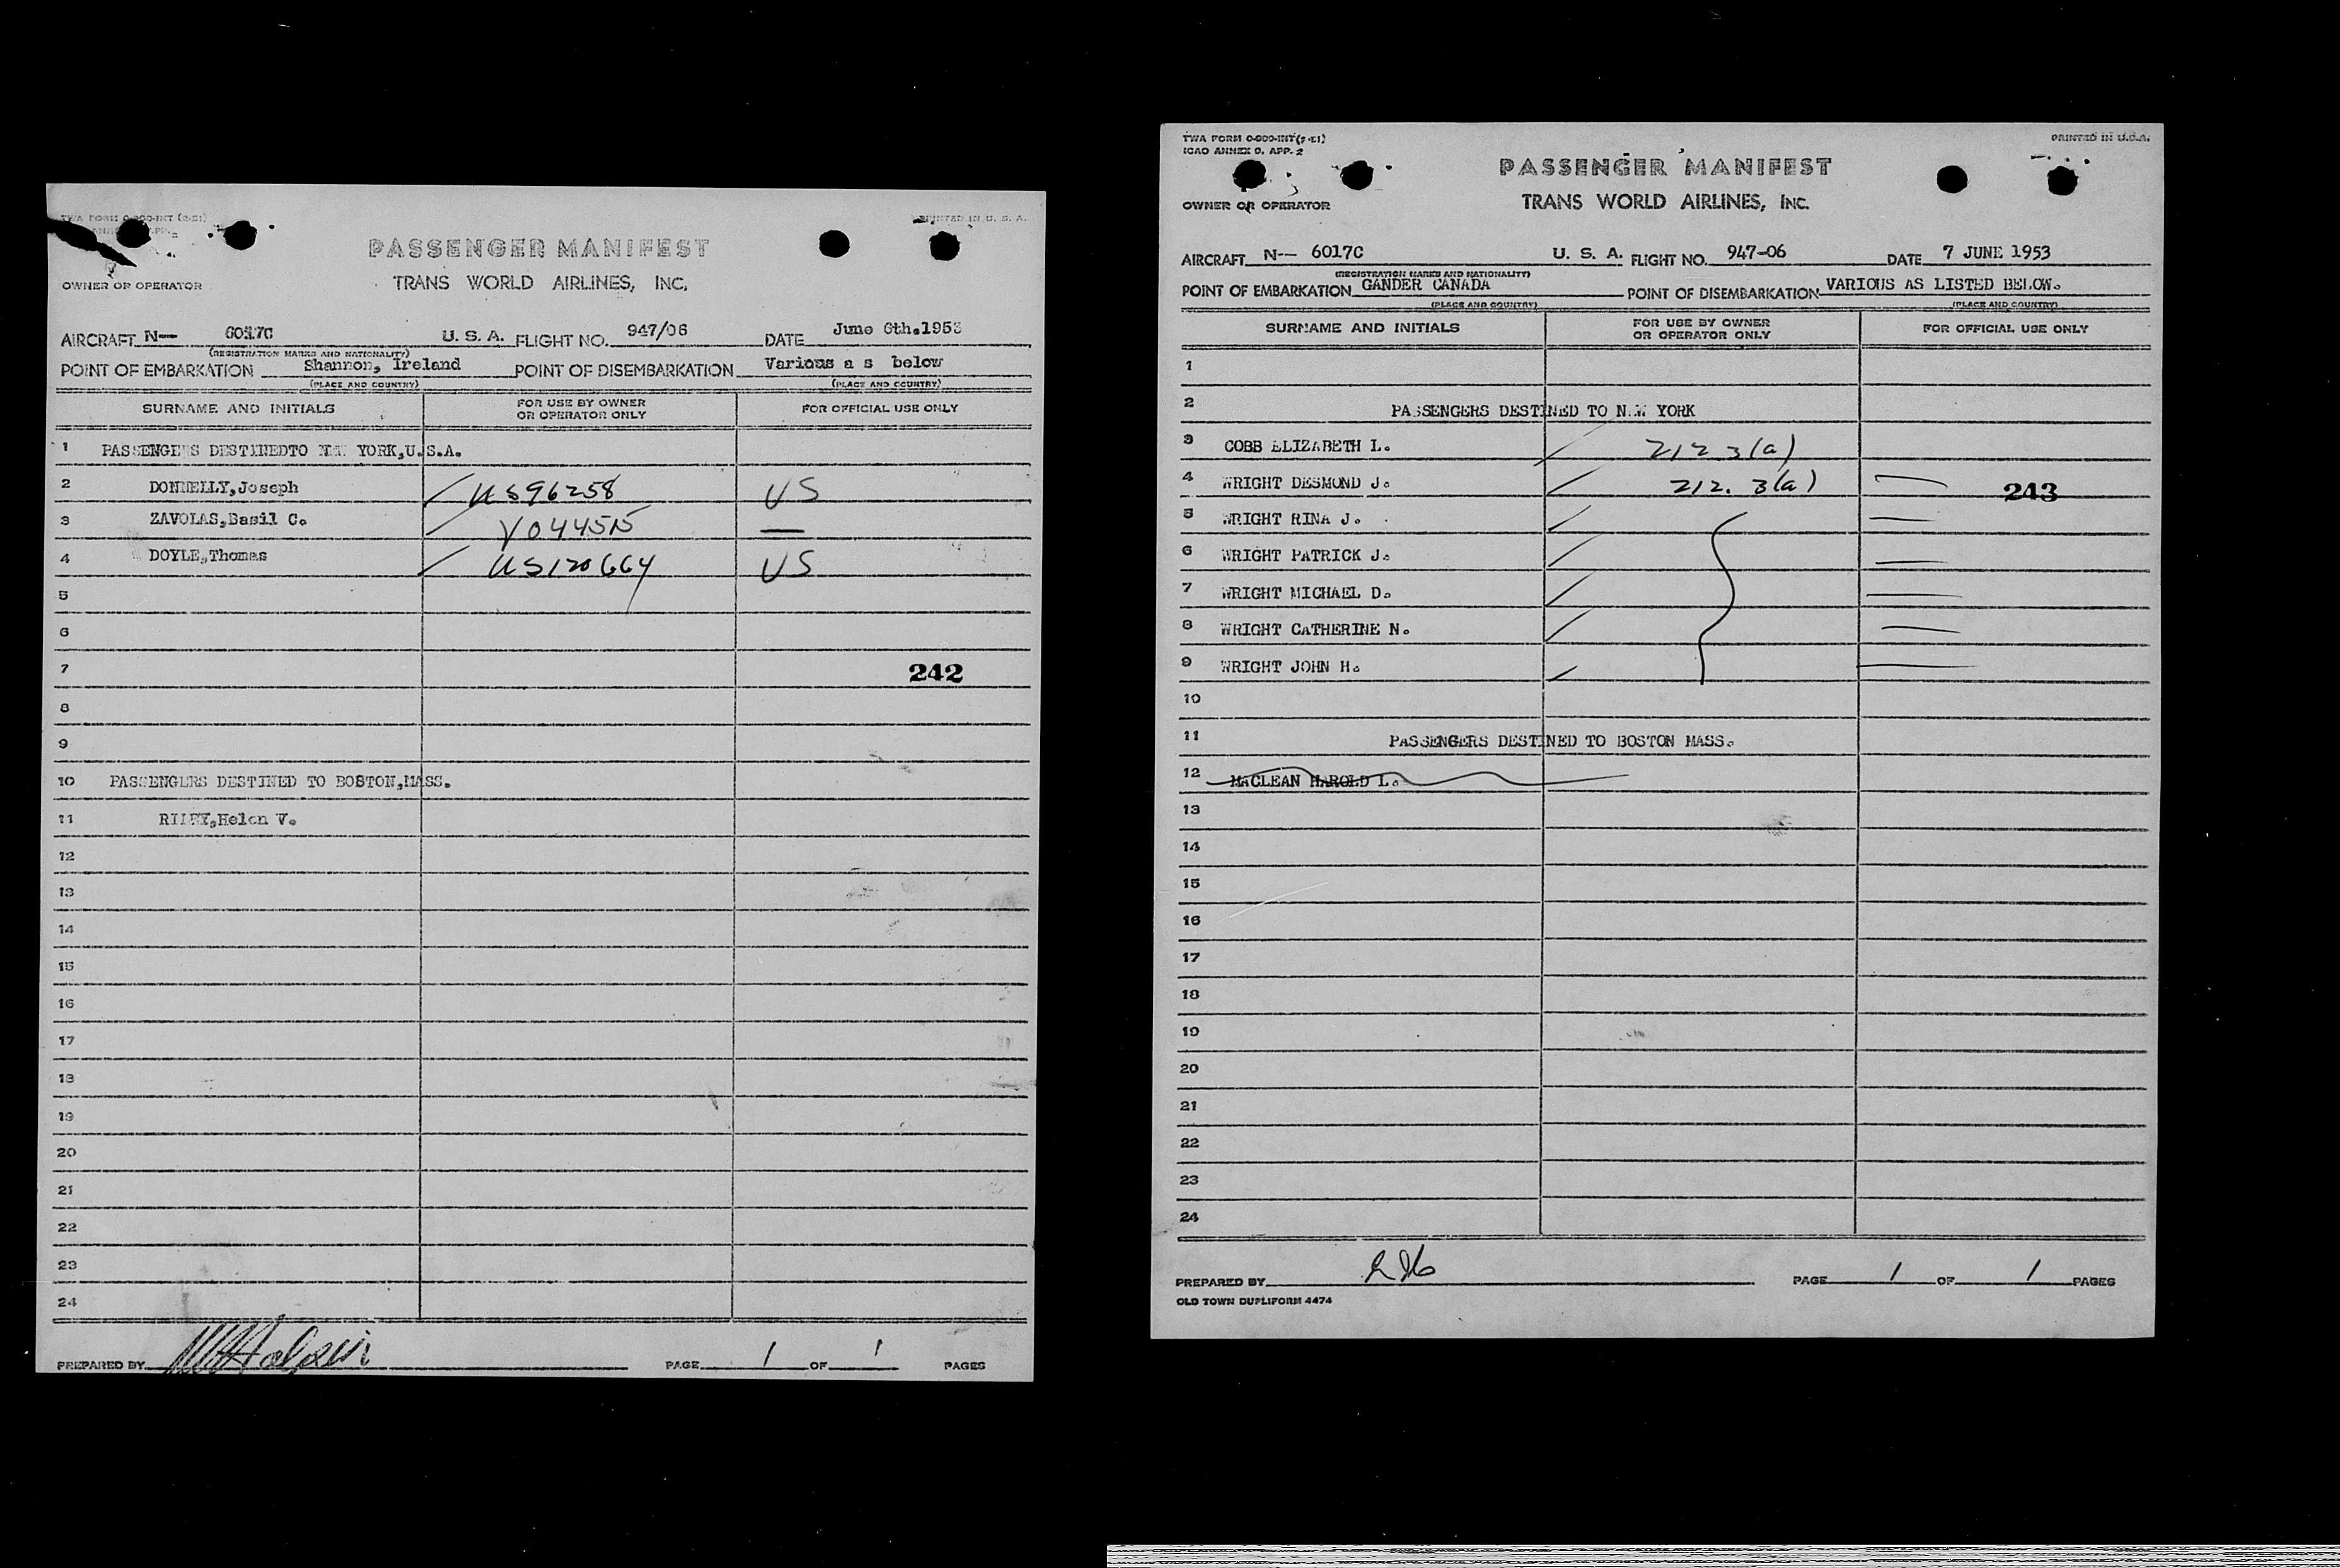 TWA FORM 0-800-INT (2-51)
PRINTED IN U. S. A.
PASSENGER MANIFEST
TRANS WORLD AIRLINES, INC.
OWNER OR OPERATOR
AIRCRAFT N-- 6017C U. S. A. FLIGHT NO. 947/06 DATE June 6th.1953
(REGISTRATION MARKS AND NATIONALITY)
POINT OF EMBARKATION Shannon, Ireland POINT OF DISEMBARKATION Various a s below
(PLACE AND COUNTRY) (PLACE AND COUNTRY)
SURNAME AND INITIALS FOR USE BY OWNER OR OPERATOR ONLY FOR OFFICIAL USE ONLY
1 PASSENGERS DESTINEDTO NEW YORK,U.S.A.
2 DONNELLY,Joseph US96258 US
3 ZAVOLAS,Basil C. V044515 —
4 DOYLE,Thomas US120664 US
5
6
7 242
8
9
10 PASSENGERS DESTINED TO BOSTON,MASS.
11 RILEY,Helen V.
12
13
14
15
16
17
18
19
20
21
22
23
24
PREPARED BY PAGE 1 OF 1 PAGES
TWA FORM 0-800-INT (2-51)
PRINTED IN U.S.A.
ICAO ANNEX 9, APP. 2
PASSENGER MANIFEST
OWNER OR OPERATOR
TRANS WORLD AIRLINES, INC.
AIRCRAFT N-- 6017C U. S. A. FLIGHT NO. 947-06 DATE 7 JUNE 1953
(REGISTRATION MARKS AND NATIONALITY)
POINT OF EMBARKATION GANDER CANADA POINT OF DISEMBARKATION VARIOUS AS LISTED BELOW.
(PLACE AND COUNTRY) (PLACE AND COUNTRY)
SURNAME AND INITIALS FOR USE BY OWNER OR OPERATOR ONLY FOR OFFICIAL USE ONLY
1
2 PASSENGERS DESTINED TO NEW YORK
3 COBB ELIZABETH L. 212 3(a)
4 WRIGHT DESMOND J. 212. 3(a) — 243
5 WRIGHT RINA J. —
6 WRIGHT PATRICK J. —
7 WRIGHT MICHAEL D. —
8 WRIGHT CATHERINE N. —
9 WRIGHT JOHN H. —
10
11 PASSENGERS DESTINED TO BOSTON MASS.
12 MACLEAN HAROLD L.
13
14
15
16
17
18
19
20
21
22
23
24
PREPARED BY PAGE 1 OF 1 PAGES
OLD TOWN DUPLIFORM 4474